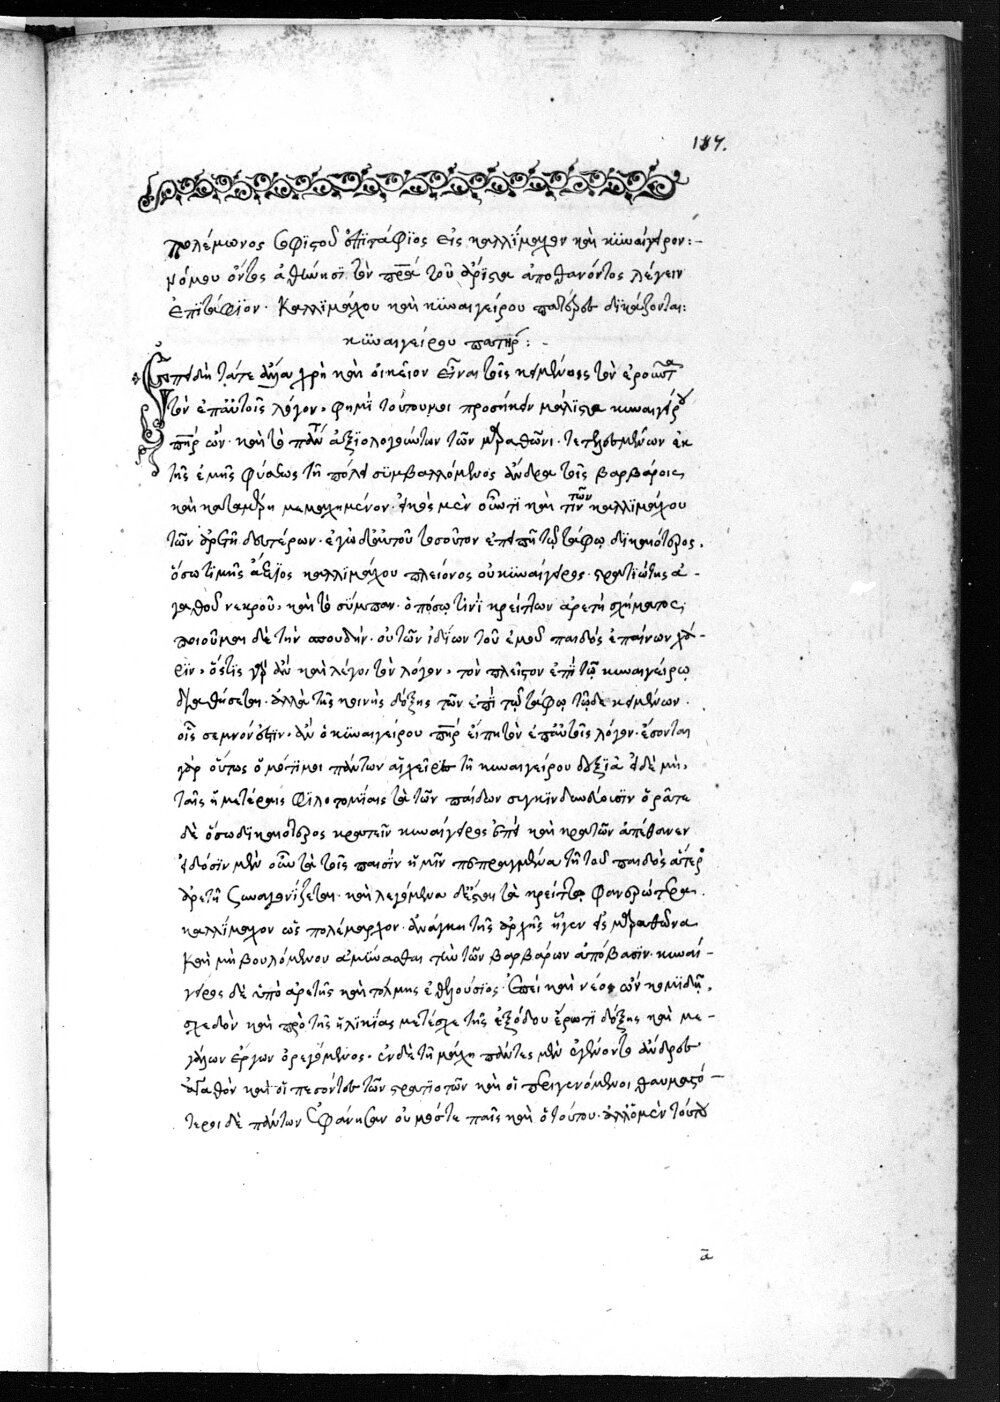 187.
πολέμωνος σοφϊστοῦ ἐπϊτάφϊος εἰς καλλΐμαχον καὶ κϋναίγειρον:-
νόμου ὄντος ἀθήνησϊ τὸν πατέρα τοῦ ἄρϊστα ἀποθανόντος λέγειν
ἐπϊτάφϊον. Καλλϊμάχου καὶ κϋναιγείρου πατέρες δϊκάζονται:
κϋναιγείρου πατήρ:-
Ἐπειδὴ τάτε ἄλλα χρὴ καὶ οἰκεῖον εἶναι τοῖς κειμένοις τὸν ἐροῦντα
τὸν ἐπ' αὐτοῖς λόγον, φημὶ τούτου μοι προσήκειν μάλϊστα κυναιγείρου
πατὴρ ὤν. καὶ τὸ πᾶν ἀξϊολογώτατον τῶν μαραθῶνι. τετολμημένων ἐκ
τῆς ἐμῆς φύσεως τῇ πόλει σϋμβαλλόμενος ἄνδρα τοῖς βαρβάροις
καὶ κατὰ μέρη μεμαχημένον. εἰκὸς μὲν οὖν τϊ καὶ τὸν τῶν καλλϊμάχου
τῶν ἀρετῇ δευτέρων. ἐγὼ δ' αὐτοῦ τοσοῦτον ἐπειπῆ τῷ τάφῳ δϊκαιότερος.
ὅσῳ τϊμῆς ἄξϊος καλλϊμάχου πλείονος ὁ κϋναίγειρος. στρατϊώτης ἀ-
γαθοῦ νεκροῦ, καὶ τὸ σύμπαν. ὁπόσῳ τινΐ κρείττων ἀρετὴ σχήματος,
ποιοῦμαι δὲ τὴν σπουδὴν. οὐ τῶν ἰδΐων τοῦ ἐμοῦ παιδὸς ἐπαίνων χά-
ρϊν, ὅστϊς γὰρ ἂν καὶ λέγοι τὸν λόγον, τὸν πλεῖστον ἐπὶ τῷ κυναιγείρῳ
δϊαθήσεται. ἀλλὰ τῆς κοινῆς δόξης τῶν ἐπὶ τῷ τάφῳ τῷδε κειμένων.
οἷς σεμνόν ἐστϊν, ἂν ὁ κϋναιγείρου πατὴρ εἴπῃ τὸν ἐπ' αὐτοῖς λόγον. ἔσονται
γὰρ οὕτως ὁμότϊμοι πάντων αἱ χεῖρες τῇ κυναιγείρου δεξϊᾷ εἰ δὲ μὴ,
ταῖς ἡμετέραις φϊλοτϊμΐαις τὰ τῶν παίδων συγκϊνδυνεύουσϊν ὁρᾶτε
δὲ ὅσῳ δϊκαιότερος κρατεῖν κυναίγειρος ἐπεὶ καὶ κρατῶν ἀπέθανεν
εἰδόσϊν μὲν οὖν τὰ τοῖς παισὶν ἡμῖν πεπραγμένα τῇ τοῦ παιδὸς ἅτερος
ἀρετῇ συναγωνΐζεται. καὶ λεγόμενα δέξαι τὰ κρείττω φανερώτερα.
καλλΐμαχον ὡς πολέμαρχον. ἀνάγκη τῆς ἀρχῆς ἦγεν εἰς μαραθῶνα
καὶ μὴ βουλόμενον ἀμϋνασθαι τὴν τῶν βαρβάρων ἀπόβασϊν. κυναί-
γειρος δὲ ὑπὸ ἀρετῆς καὶ τόλμης ἐθελούσϊος. ἐπεὶ καὶ νέος ὢν κομϊδῇ,
σχεδὸν καὶ πρὸ τῆς ἡλϊκίας μετέσχε τῆς ἐξόδου ἔρωτϊ δόξης καὶ με-
γάλων ἔργων ὀρεγόμενος. ἐν δὲ τῇ μάχῃ πάντες μὲν ἐγένοντο ἄνδρες
ἀγαθοὶ καὶ οἱ πεσόντες τῶν στρατϊωτῶν καὶ οἱ περιγενόμενοι θαυμαστό-
τεροι δὲ πάντων ἐφάνησαν οὑμόστε παῖς καὶ ὁ τούτου. ἀλλ' ὁ μὲν τούτου
ᾱ